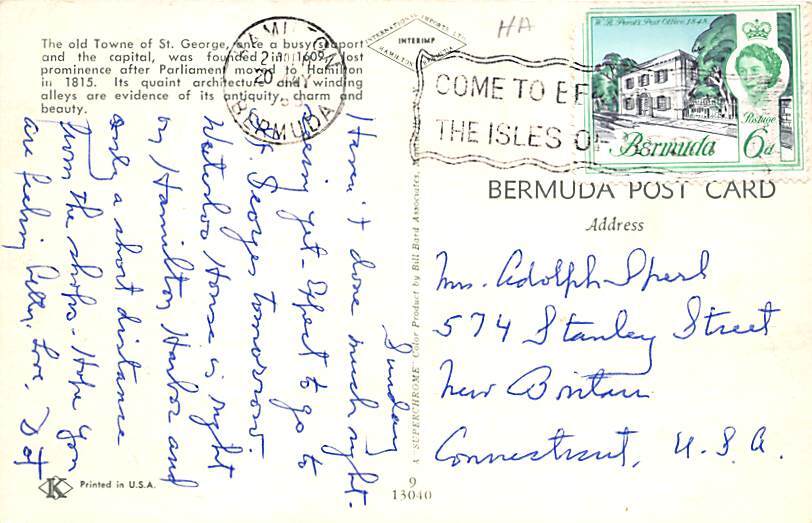 The old Towne of St. George, once a busy seaport
and the capital, was founded in 1609, lost
prominence after Parliament moved to Hamilton
in 1815. Its quaint architecture and winding
alleys are evidence of its antiquity, charm and
beauty.
Sunday
Haven't done much sight-
seeing yet - Expect to go to
St. Georges tomorrow.
Waterloo House is right
on Hamilton Harbor and
only a short distance
from the shops - Hope you
are feeling better. Love, Dot
Printed in U.S.A.
K
A SUPERCHROME Color Product by Bill Bard Associates,
9
13040
INTERNATIONAL IMPORTS LTD.
INTERIMP
HAMILTON BERMUDA
HAMILTON
20
BERMUDA
HA
COME TO
THE ISLES OF
W. B. Perot's Post Office, 1848
Postage
Bermuda 6d
BERMUDA POST CARD
Address
Mrs. Adolph Sperl
574 Stanley Street
New Britain
Connecticut, U.S.A.